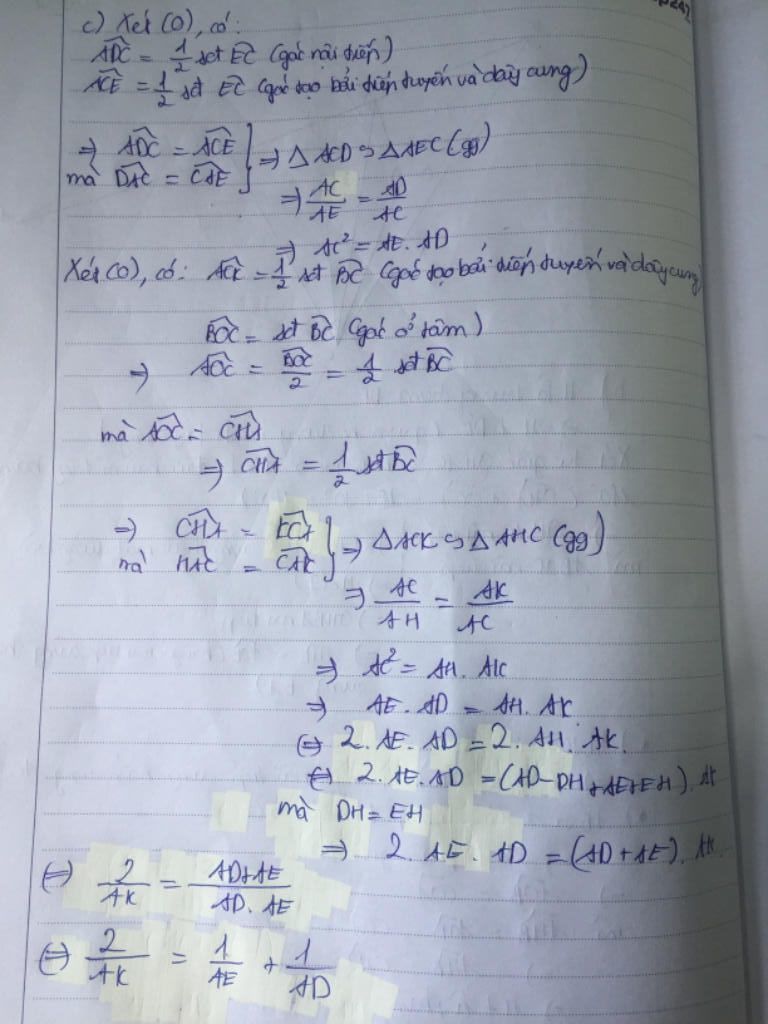 c) Xét (O), có:
ADC = 1/2 sđ EC (góc nội tiếp)
ACE = 1/2 sđ EC (góc tạo bởi tiếp tuyến và dây cung)
⇒ ADC = ACE } ⇒ Δ ACD ∽ Δ AEC (gg)
mà DAC = CAE
⇒ AC/AE = AD/AC
⇒ AC² = AE. AD
Xét (O), có: ACK = 1/2 sđ BC (góc tạo bởi tiếp tuyến và dây cung)
BOC = sđ BC (góc ở tâm)
⇒ AOC = BOC/2 = 1/2 sđ BC
mà AOC = CHA
⇒ CHA = 1/2 sđ BC
⇒ CHA = ECA } ⇒ Δ ACK ∽ Δ AHC (gg)
mà HAC = CAK
⇒ AC/AH = AK/AC
⇒ AC² = AH. AK
⇒ AE. AD = AH. AK
(⇒ 2. AE. AD = 2. AH. AK.
⇔ 2. AE. AD = (AD-DH+AE+EH). AK
mà DH = EH
⇒ 2. AE. AD = (AD + AE). AK
⇔ 2/AK = AD+AE/AD. AE
⇔ 2/AK = 1/AE + 1/AD